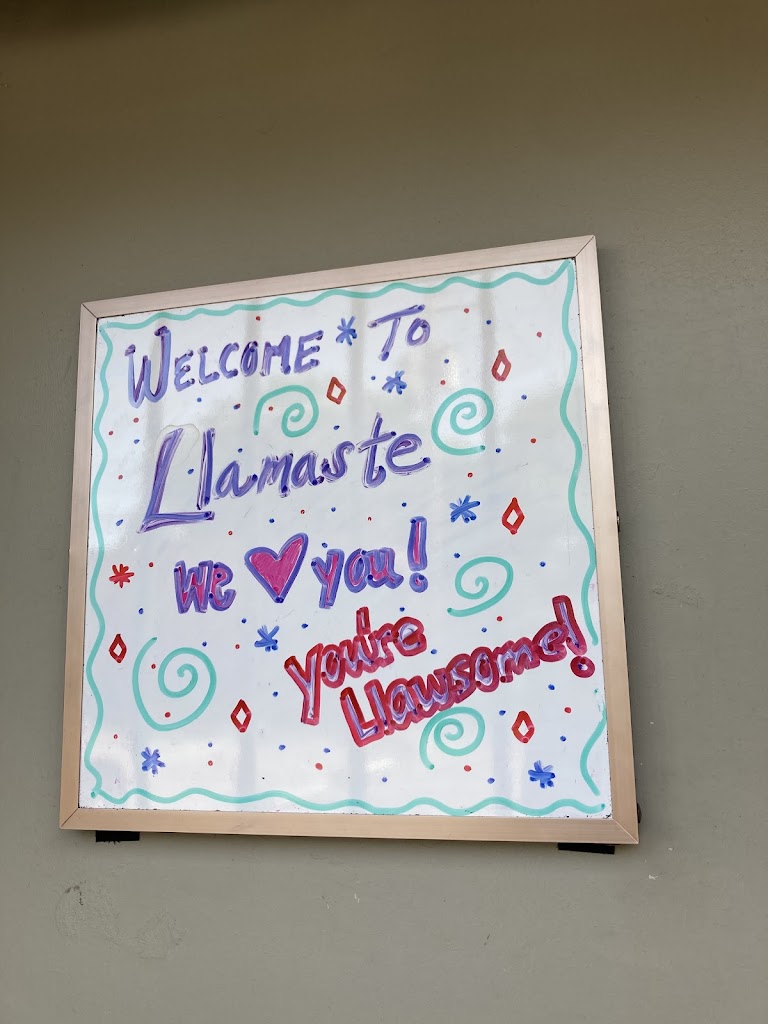 WELCOME TO
Llamaste
We ♥ you!
you're
Llawsome!